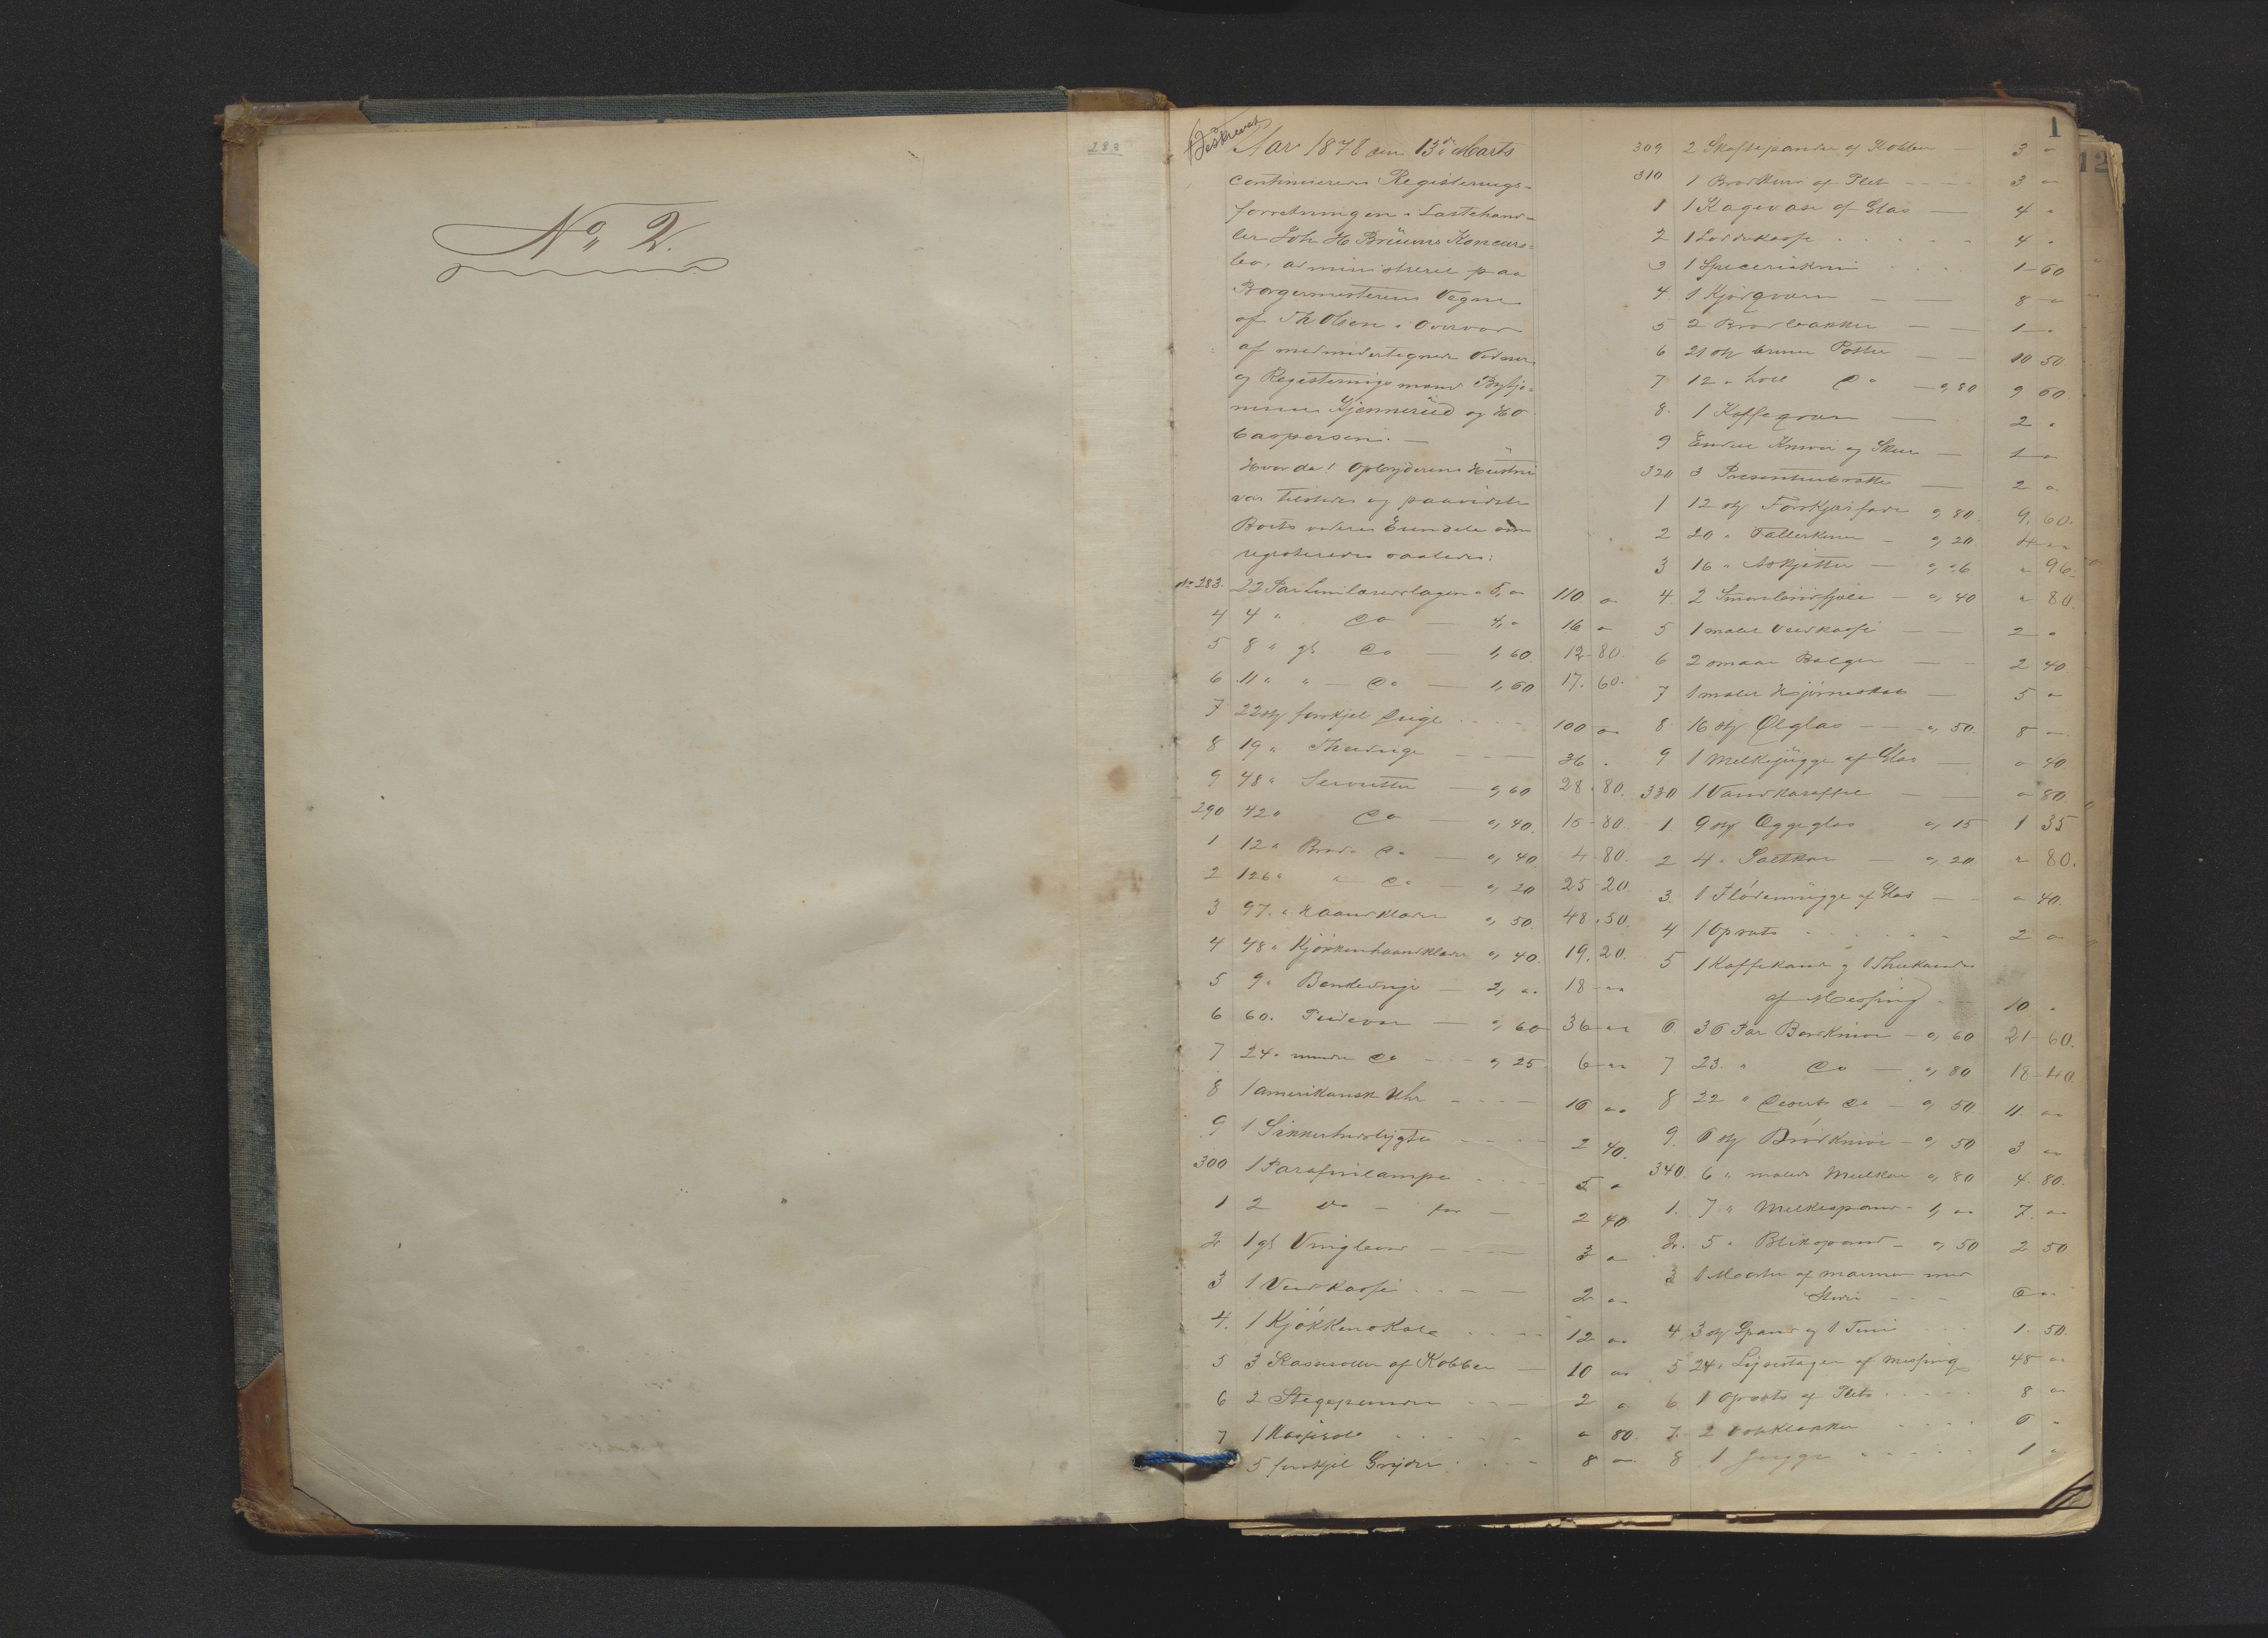 No 2.
283
1
12
Beskrevet
Aar 1878 den 13de Marts
continueredes Registerings-
forretningen i Lastehand-
ler Joh H Brüuns Koncurs-
bo, administreret paa
Borgermesterens Vegne
af Th Olsen i Overvær
af medundertegnede Vidner
og Registeringsmænd Bytje-
nerne Kjennerüd og HO
Caspersen. —
Hvor da! Opbyderens Hüstru
var tilstede og paaviste
Boets videre Eiendele som
registreredes saaledes:
No 283. 22 Par Linlæredslagen a 5, " 110 "
4 4 " Do — 4, " 16 "
5 8 " gl Do — 1,60 12-80.
6 11 " " — Do — 1,60 17.60.
7 22 st forskjel Duge 100 "
8 19 " Theeduge — 36 "
9 48 " Servietter — ",60 28.80.
290 42 " Do — ",40. 16-80
1 12 " Brede Do — ",40 4-80.
2 126 " " Do — ",20 25-20.
3 97. " Haandklæder ",50. 48.50.
4 48 " Kjøkkenhaandklæder ",40 19.20.
5 9 " — 2, " 18 "
6 60. Pudevar — ",60 36 "
7 24 " mindre Do — ",25. 6 "
8 1 amerikansk Uhr 16 "
9 1 Sikkerhedslygte 2 40.
300 1 Parafinlampe 5 "
1 2 Do — 2 40
2 1 gl 3 "
3 1 Vedkasse 2 "
4. 1 Kjøkkenskab 12 "
5 3 Kasseroller af Kobber — 10 "
6 2 Stegepander 2 "
7 1 Kasserol " 80.
5 forskjel Gryder 8 "
309 2 Skaftepander af Kobber — 3 "
310 1 Brødkurv af Plet 3 "
1 1 Kagevase af Glas — 4 "
2 4 "
3 1 Specerikrin 1-60
4. 1 Kjødqværn — 8 "
5 2 Brødbakker — 1 "
6 21 st brune Potter — 10 50
7 12 " hvide Do — ",80 9 60
8. 1 Kaffeqværn — 2 "
9 Endel Knive og Skeer — 1 "
320 3 Presenteerbrette — 2 "
1 12 st Forskjel fade ",80. 9.60.
2 20 " Tallerkener — ",20 4 "
3 16 " Asjetter — ",06 " 96.
4. 2 — ",40 " 80.
5 1 malet Vedkasse — 2 "
6 2 smaae Balger — 2 40
7 1 malet Hjørneskab — 5 "
8 16 st Ølglas — ",50. 8 "
9 1 Melkejügge af Glas — " 40
330 1 Vandkaraffel — " 80
1. 9 st Æggeglas ",15 1 35
2 4 " Saltkar — ",20 " 80.
3. 1 Flødemügge af Glas — " 40.
4 1 Opsats 2 "
5 1 Kaffekande og 1 Theekande
af Messing 10 "
6 36 Par Bordknive — ",60 21-60.
7 23. " Do — ",80 18-40
8 22 " Desert Do — ",50 11. "
9. 6 st Brødknive — ",50 3 "
340. 6 " malede Melkekar ",80 4.80.
1. 7 " Melkespand — 1, " 7. "
2. 5 " Blikspand — ",50 2 50
3 1 Morter af Marmor med
Støder 6 "
4. 3 st Spand og 1 Tine 1.50.
5 24 " Lysestager af Messing 48 "
6 1 Opsats af Plet 8 "
7. 2 6 "
8 1 Jugge 1 "